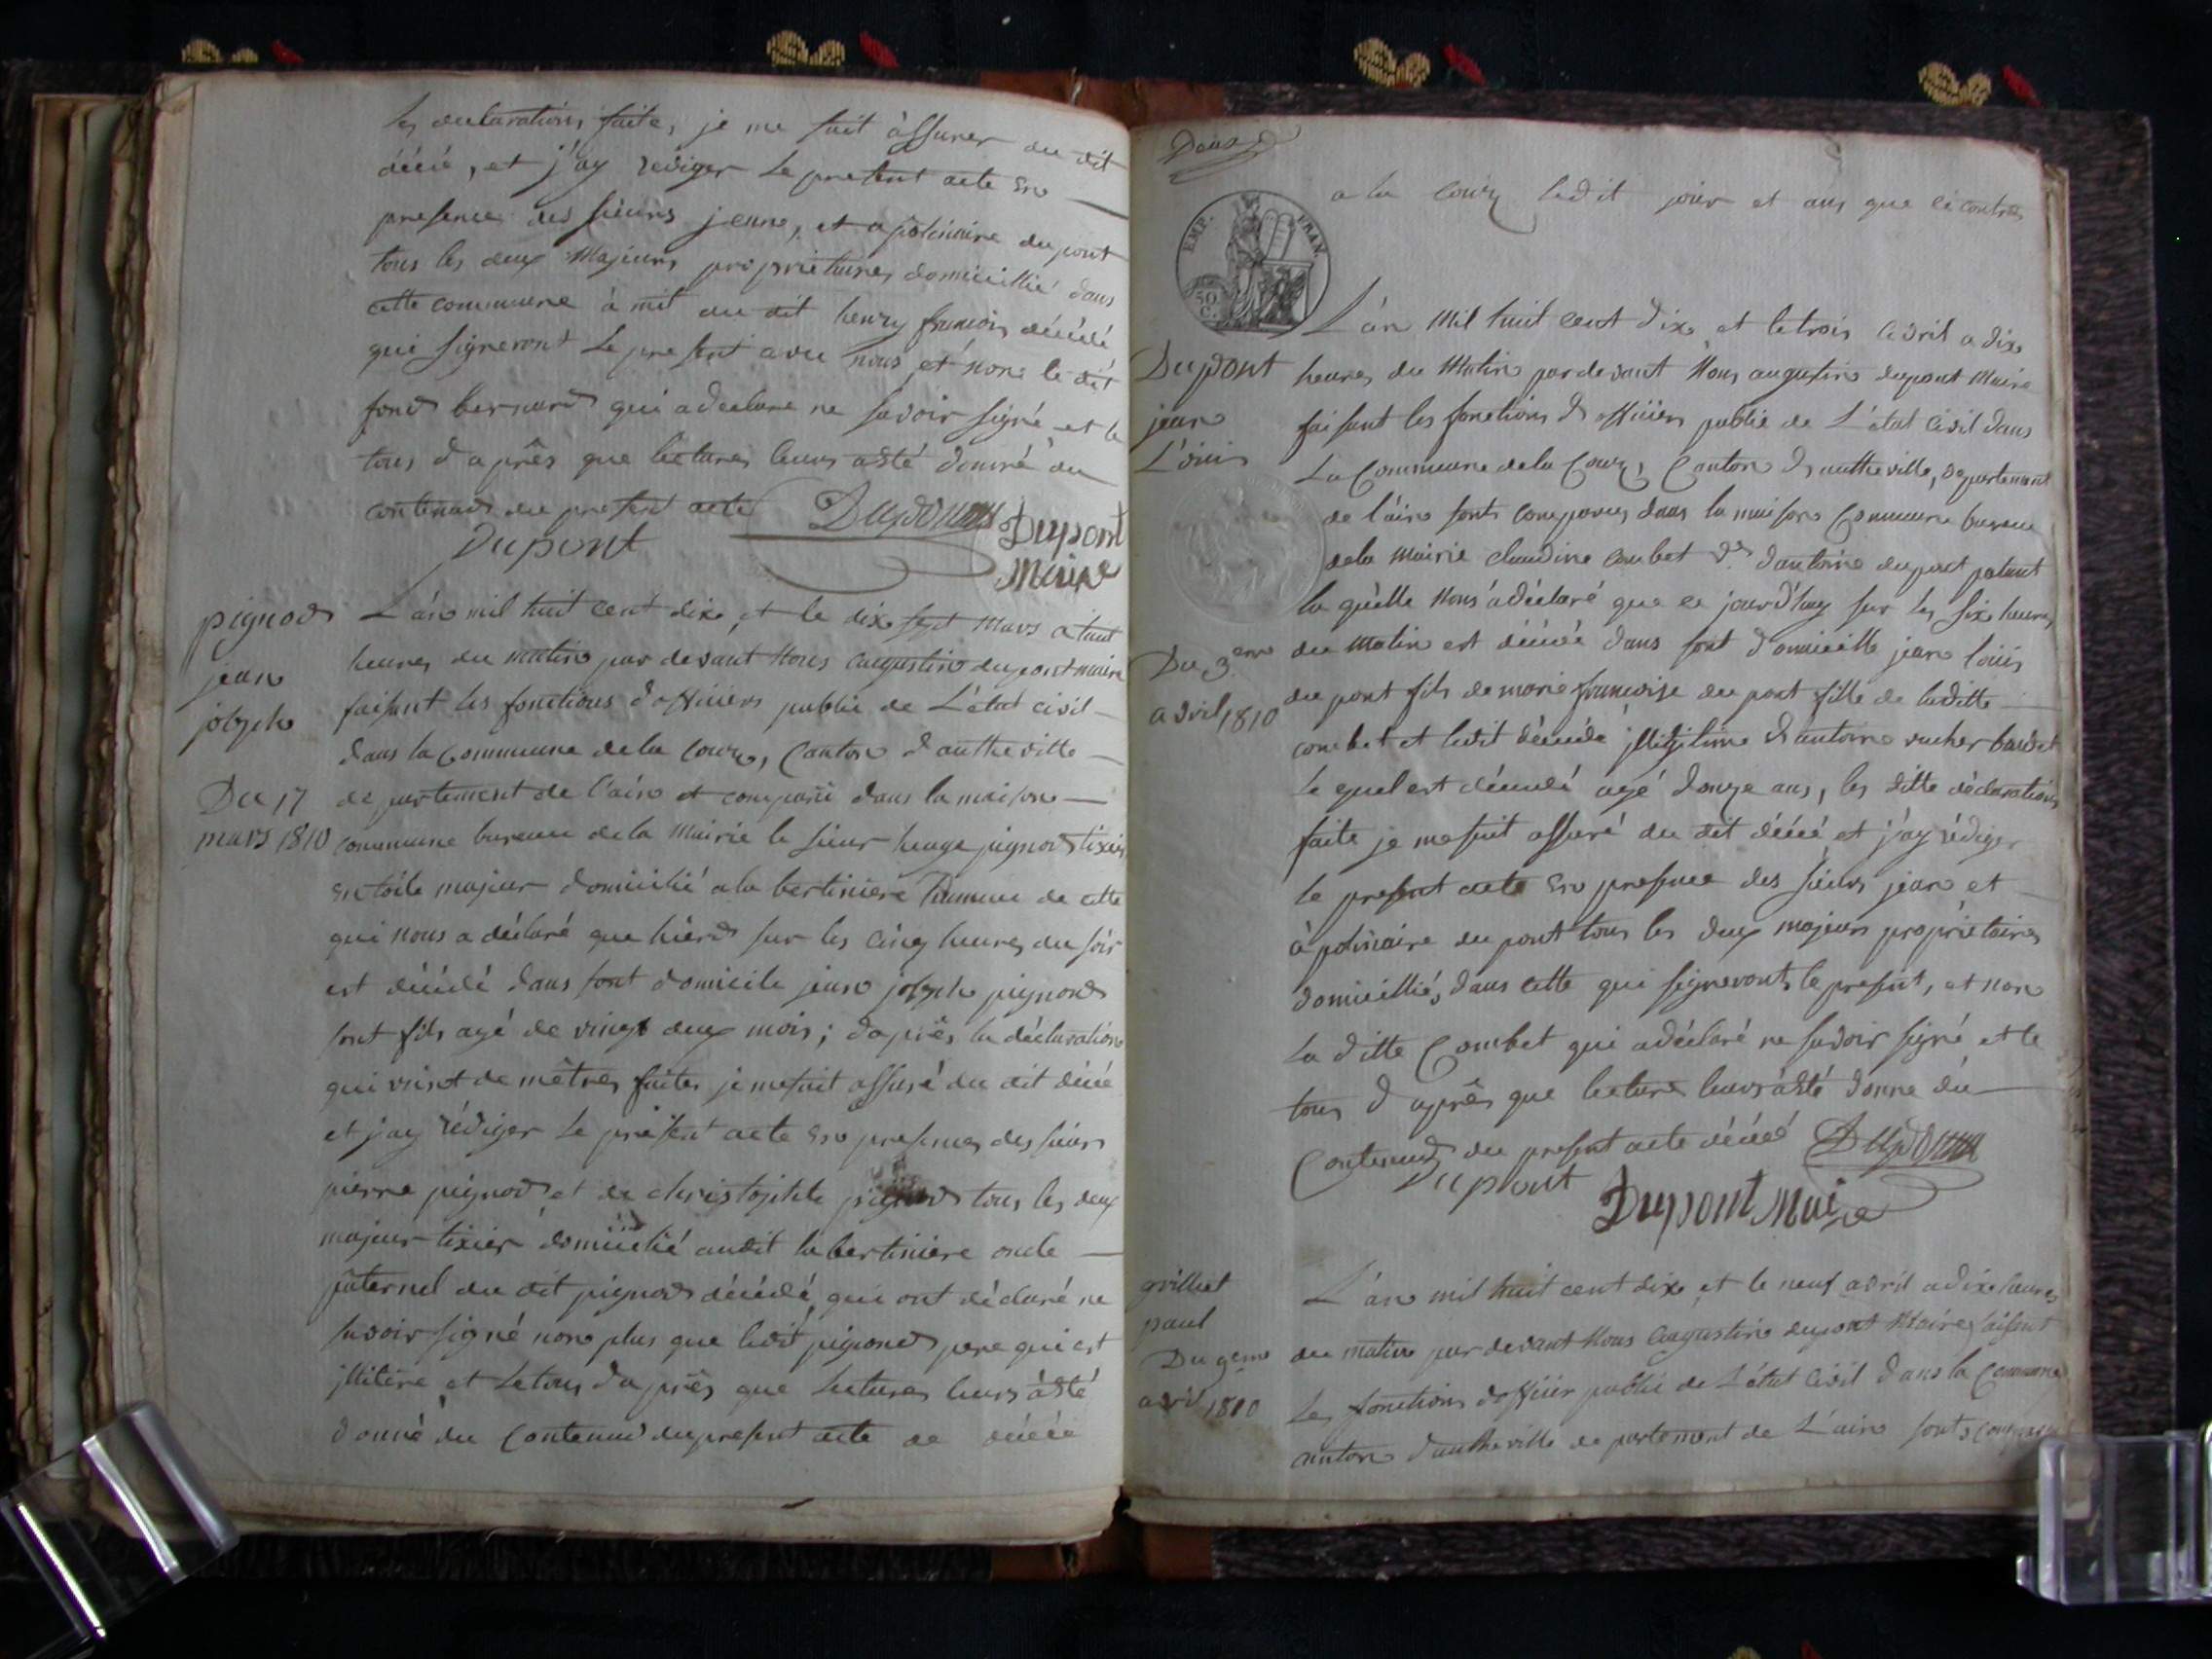 les declarations faites je me suit assurer du dit
décé, et j'ay rediger le present acte en
presence des sieurs jenne, et apolinaire dupont
tous les deux majeurs proprietaires domicillié dans
cette commune à mit du dit henry francois décédé
qui signeront le present avec nous et non le dit
fond bernard qui a declare ne savoir signé et le
tous d'après que lectures leurs asté donné du
contenud du present acte
Dupont
Dupont
Maire
pignod
jean
joseph
Du 17
mars 1810
L'an mil huit cent dix et le dix sept mars a huit
heures du matin par devant nous augustin dupont maire
faisant les fonctions d'officiers public de L'état civil
dans la commune de la Coux, Canton d'autheville
departement de l'ain et comparu dans la maison
commune bureau de la Mairie le sieur huge pignod tixier
en toile majeur domicilié a la bertiniere hameau de cette
qui nous a déclaré que hierd sur les cinq heures du soir
est décédé dans sont domicile jean joseph pignond
sont fils agé de vingt deux mois; d'après la déclaration
qui vient de mêtres faites je me suit assuré du dit décé
et j'ay rédiger le présent acte en presences des sieurs
pierre pignod et de christophle pignod tous les deux
majeur tixier domicilié audit la bertiniere oncle
paternel du dit pignod décédé qui ont déclaré ne
savoir signé non plus que ledit pignond pere qui est
jlitére et le tous d'après que lectures leurs àsté
donné du contenud du present acte de décéé
Deux
a la Coux ledit jour et ans que ci contres
EMP. FRAN.
50 C.
Dupont
jean
L'ouis
Du 3eme
avril 1810
L'an Mil huit cent dix et le trois avril a dix
heures du Matin par devant Nous augustin dupont Maire
faisant les fonctions d'officiers public de L'état civil dans
La Commune de la Coux, Canton d'autheville, departement
de l'ain sont comparus dans la maison Commune bureau
de la Mairie claudine combet Ve d'antoine dupont
la quelle Nous a déclaré que ce jourd'huy sur les six heures
du Matin est décédé dans sont domicille jean louis
dupont fils de marie francoise dupont fille de laditte
combet et ledit décédé jlligitime d'antoine
le quel est décédé agé d'onze ans, les ditte déclarations
faite je me suit assuré du dit décéé et j'ay rédiger
le present acte en presence des sieurs jean et
àpolinaire dupont tous les deux majeurs propriétaires
domicilliés dans cette qui signeronts le present, et non
La ditte Combet qui a déclaré ne savoir signé et le
tous d'après que lecture leurs àsté donne du
Contenud du present acte décéé
Dupont
Dupont Maire
grilliet
paul
Du 9eme
avril 1810
L'an mil huit cent dix et le neuf avril a dix heures
du matin par devant Nous augustin dupont Maire faisant
Les fonctions d'officier public de L'état civil dans la Commune
canton d'autheville departement de L'ain sont comparu